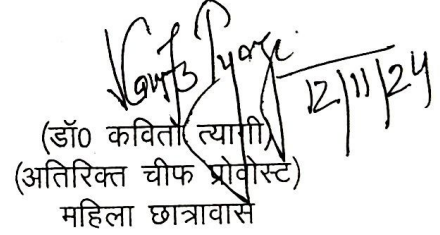 12/11/24
(डॉ0 कविता त्यागी)
(अतिरिक्त चीफ प्रोवोस्ट)
महिला छात्रावास